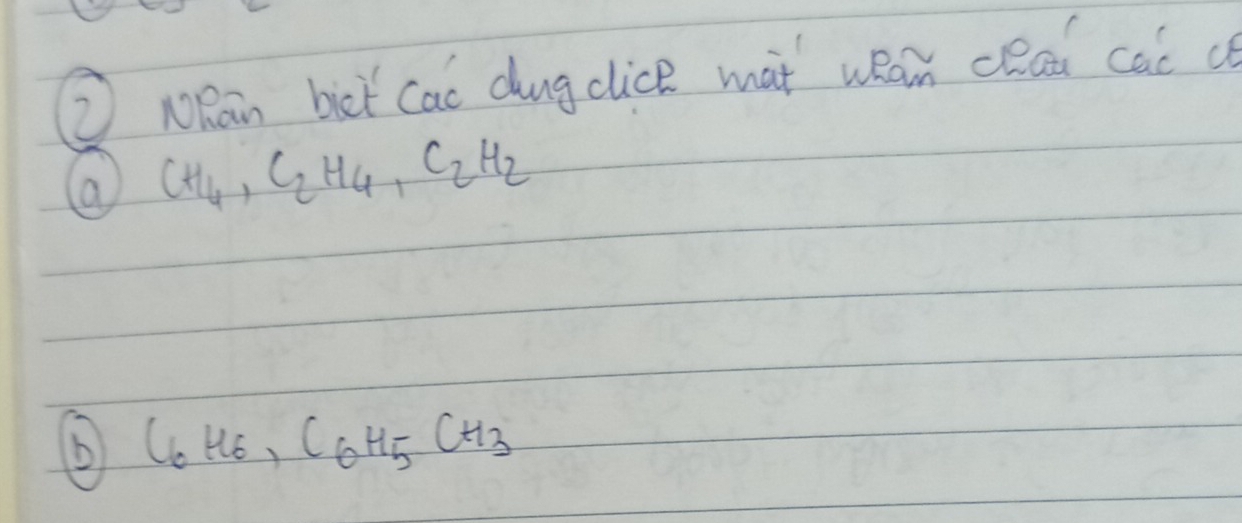 ② Nhận biết các dung dịch mất nhãn chứa các
ⓐ CH4, C2H4, C2H2
ⓑ C6H6, C6H5CH3